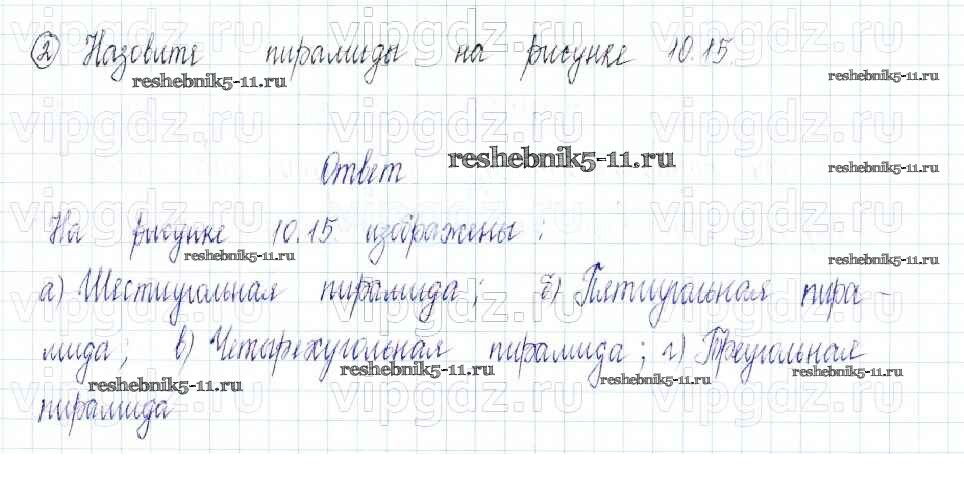 vipgdz.ru vipgdz.ru vipgdz.ru
② Назовите пирамиды на рисунке 10.15.
reshebnik5-11.ru reshebnik5-11.ru
vipgdz.ru vipgdz.ru vipgdz.ru
Ответ reshebnik5-11.ru reshebnik5-11.ru
vipgdz.ru vipgdz.ru vipgdz.ru
На рисунке 10.15 изображены:
reshebnik5-11.ru reshebnik5-11.ru
а) Шестиугольная пирамида; б) Пятиугольная пира-
vipgdz.ru vipgdz.ru vipgdz.ru
мида; в) Четырехугольная пирамида; г) Треугольная
reshebnik5-11.ru reshebnik5-11.ru reshebnik5-11.ru reshebnik5-11.ru
пирамида
vipgdz.ru vipgdz.ru vipgdz.ru